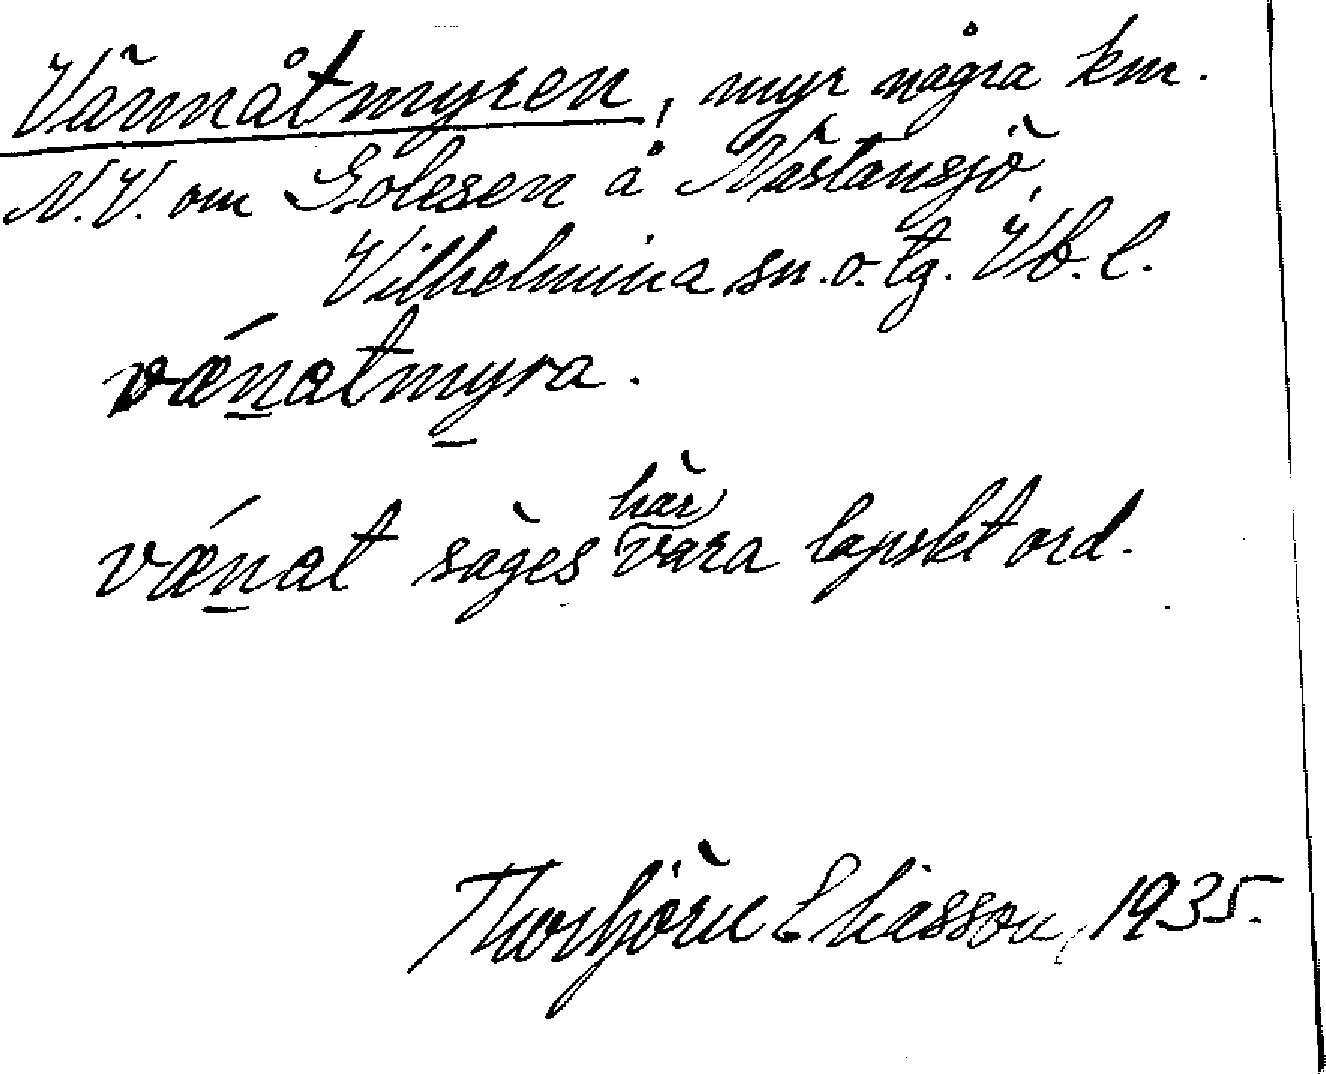 Vännåtmyren, myr några km.
N.V. om Golesen å Nästansjö,
Vilhelmina sn. o. tg. Vb. l.
vǽn̲atm̲yra.
vǽn̲at säges här vara lapskt ord.
Thorbjörn Eliasson, 1935.